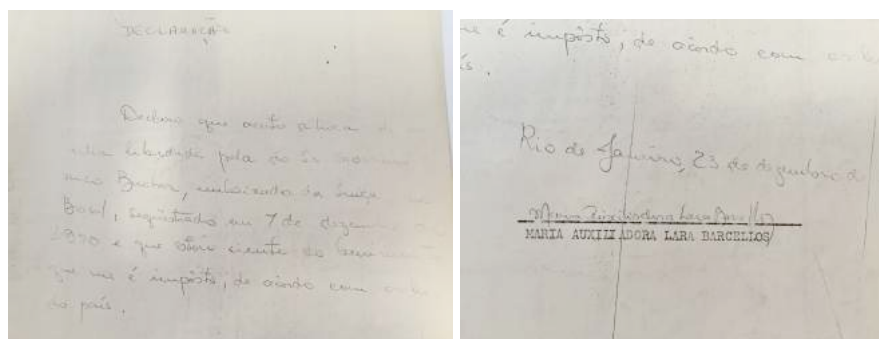 DECLARAÇÃO
Declaro que aceito a troca de
nha liberdade pela do Sr.
Bucher, embaixador da Suíça
Brasil, seqüestrado em 7 de dezem
1970 e que estou ciente do banimento
que me é impôsto, de acôrdo com as le
do país.
me é impôsto, de acôrdo com as le
ís.
Rio de Janeiro, 23 de dezembro de
Maria Auxiliadora Lara Barcellos
MARIA AUXILIADORA LARA BARCELLOS